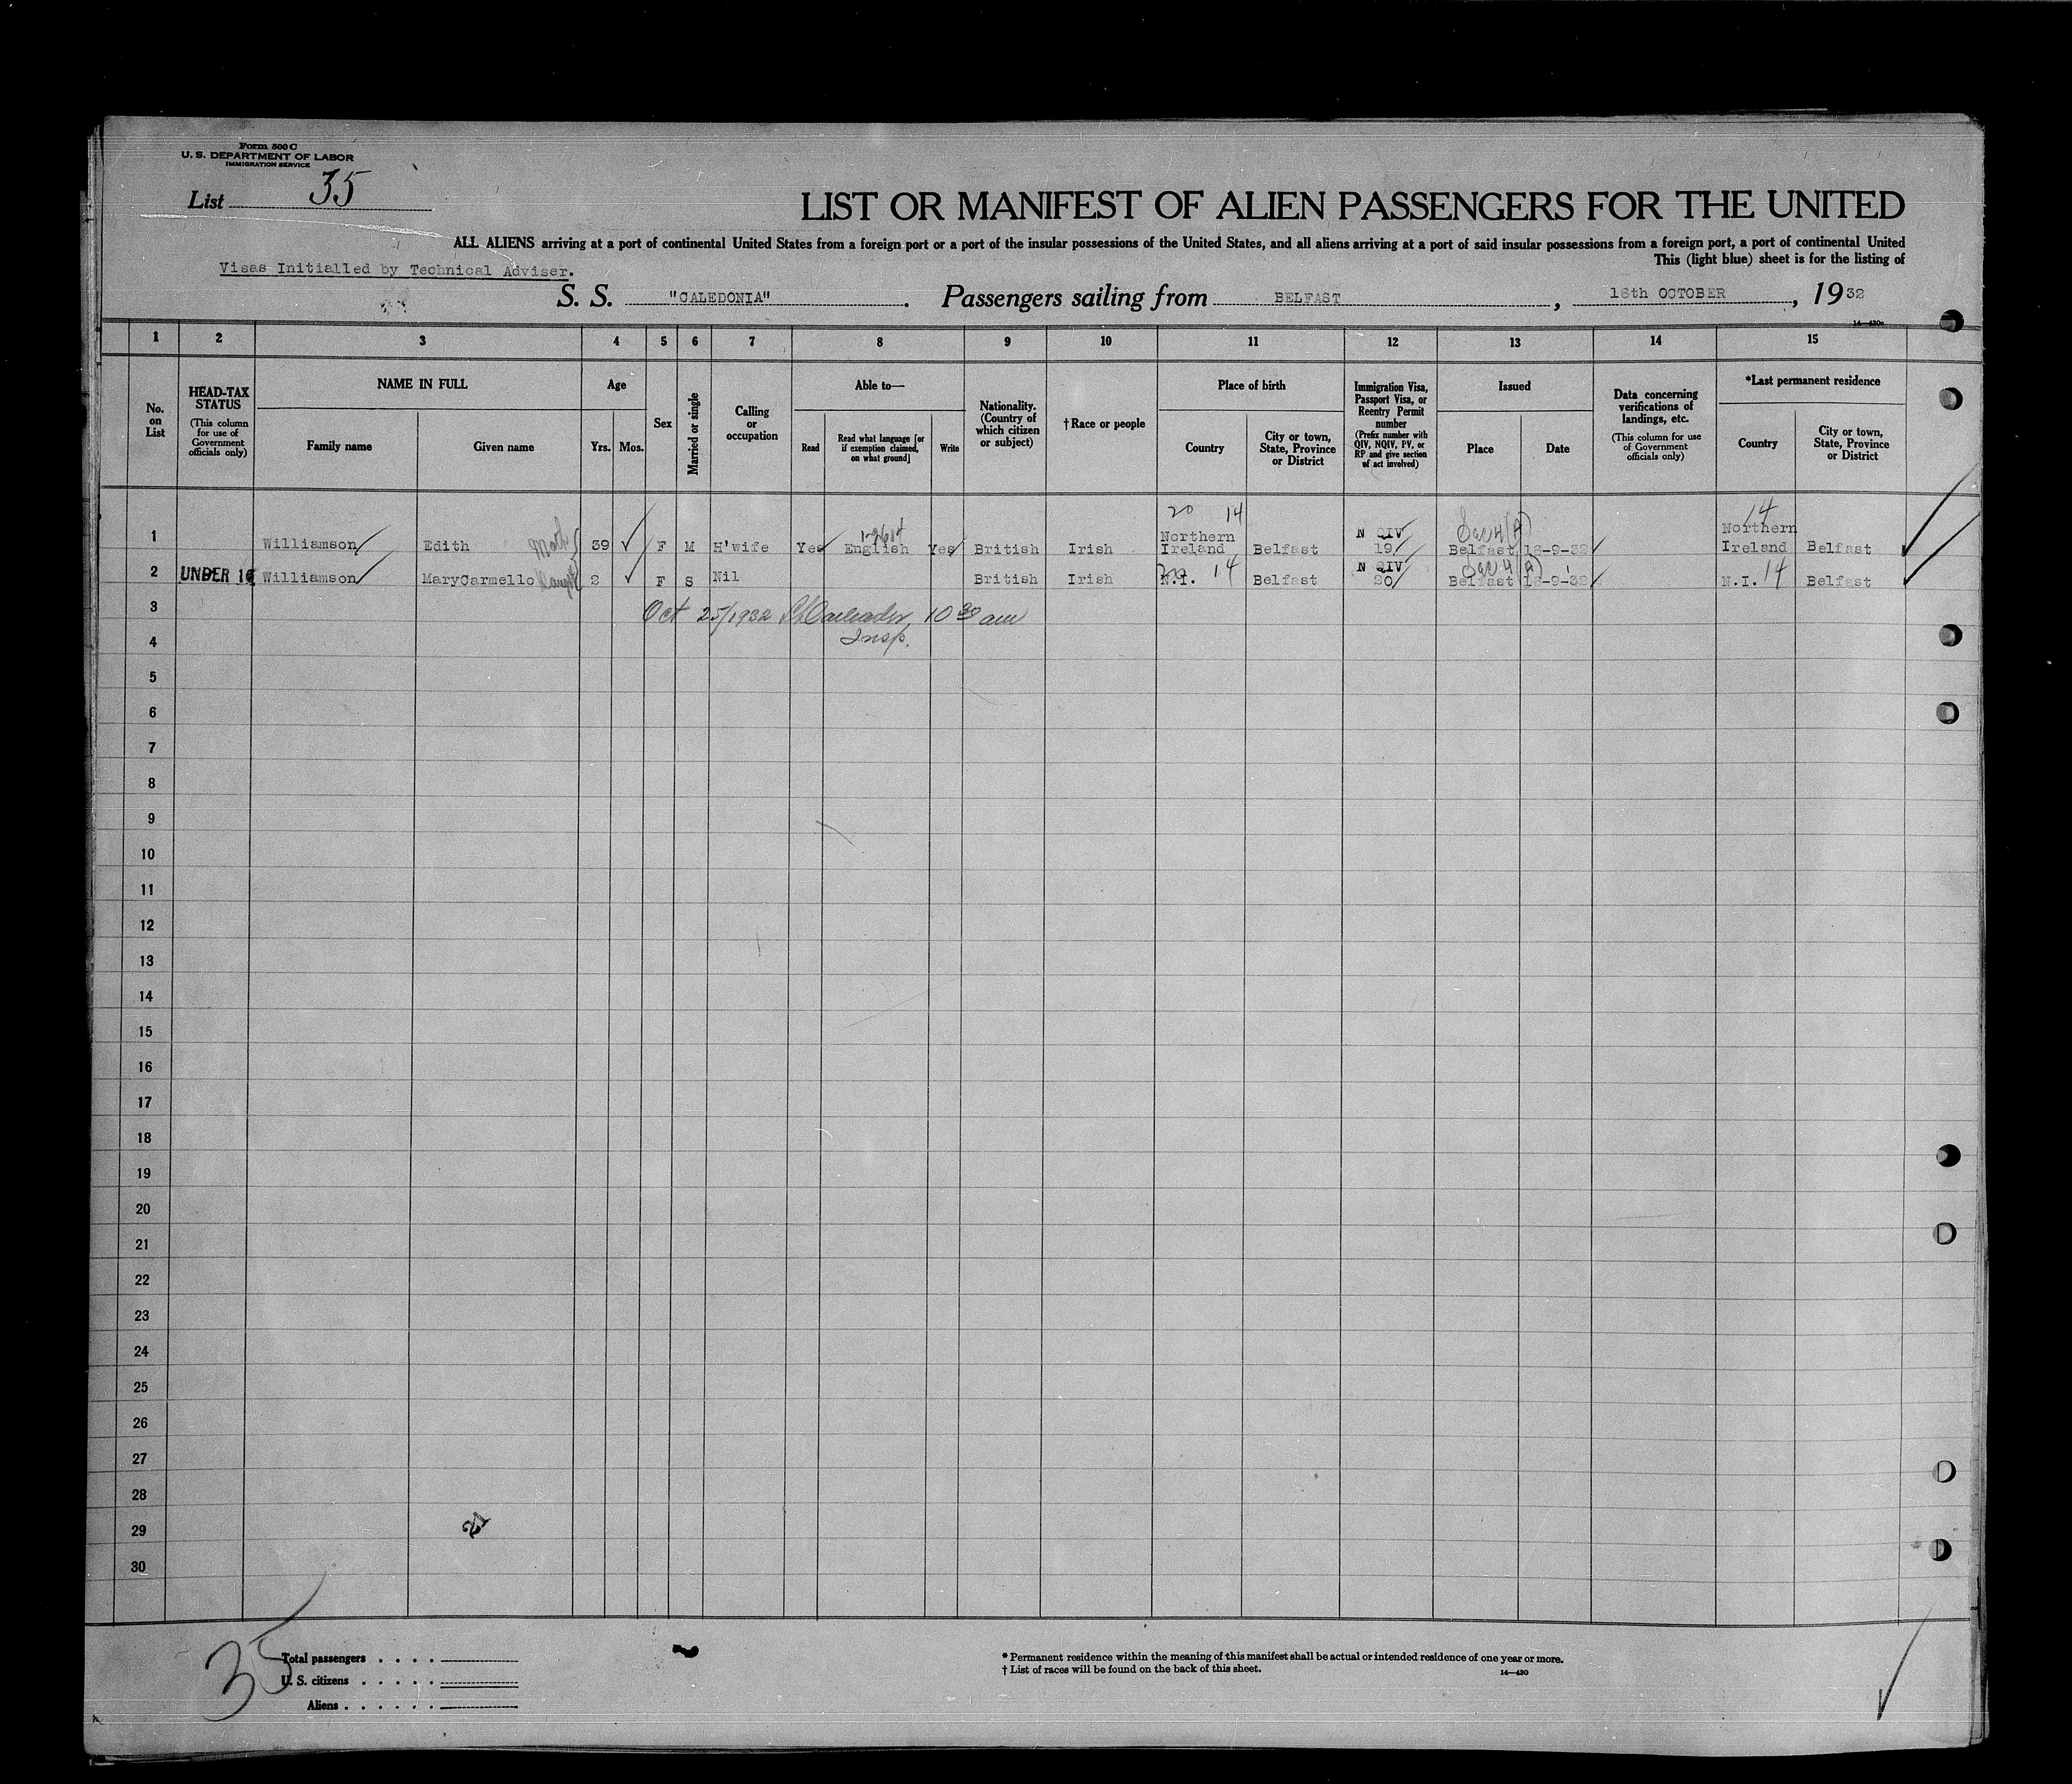 Form 500 C
U. S. DEPARTMENT OF LABOR
IMMIGRATION SERVICE
List 35
LIST OR MANIFEST OF ALIEN PASSENGERS FOR THE UNITED
ALL ALIENS arriving at a port of continental United States from a foreign port or a port of the insular possessions of the United States, and all aliens arriving at a port of said insular possessions from a foreign port, a port of continental United
This (light blue) sheet is for the listing of
Visas Initialled by Technical Adviser.
S. S. "CALEDONIA". Passengers sailing from BELFAST, 16th OCTOBER, 1932
14—430a
1 2 3 4 5 6 7 8 9 10 11 12 13 14 15
No. on List
HEAD-TAX STATUS (This column for use of Government officials only)
NAME IN FULL
Family name
Given name
Age
Yrs.
Mos.
Sex
Married or single
Calling or occupation
Able to—
Read
Read what language [or if exemption claimed, on what ground]
Write
Nationality. (Country of which citizen or subject)
†Race or people
Place of birth
Country
City or town, State, Province or District
Immigration Visa, Passport Visa, or Reentry Permit number (Prefix number with QIV, NQIV, PV, or RP and give section of act involved)
Issued
Place
Date
Data concerning verifications of landings, etc. (This column for use of Government officials only)
*Last permanent residence
Country
City or town, State, Province or District
20 14
14
1 Williamson Edith Moth 39 F M H'wife Yes English Yes British Irish Northern Ireland Belfast N QIV 19 Belfast 16-9-32 Northern Ireland Belfast
2 UNDER 16 Williamson MaryCarmello 2 F S Nil British Irish N.I. 14 Belfast N QIV 20 Belfast 16-9-32 N.I. 14 Belfast
3 Oct 25/1932 10 30 am
Insp.
4
5
6
7
8
9
10
11
12
13
14
15
16
17
18
19
20
21
22
23
24
25
26
27
28
29
30
21
35
Total passengers
U. S. citizens
Aliens
* Permanent residence within the meaning of this manifest shall be actual or intended residence of one year or more.
† List of races will be found on the back of this sheet.
14—430